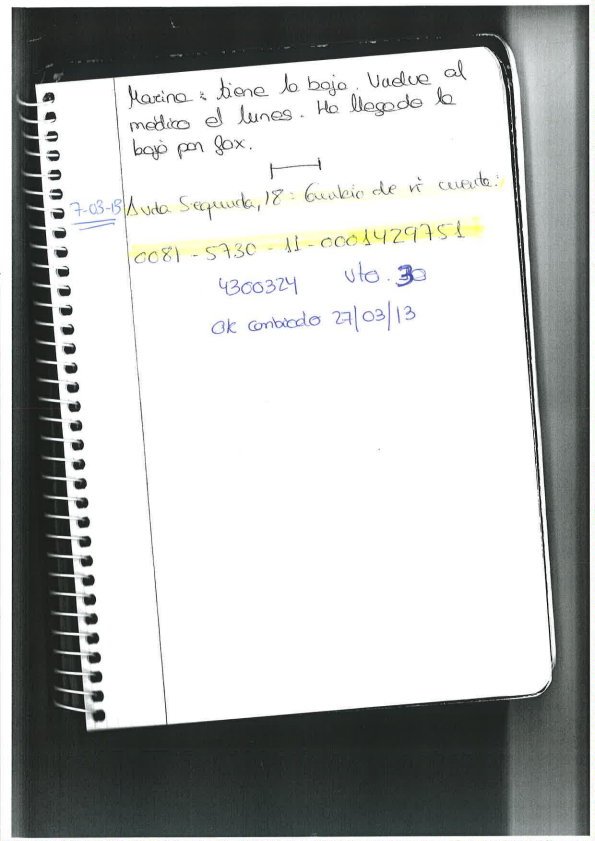 Marina : tiene la baja. Vuelve al
médico el lunes. Ha llegado la
baja por fax.
7-03-13 Avda Segunda, 18 : Cambio de nº cuenta:
0081 - 5730 - 11 - 0001429751
4300324 Vto. 30
Ok cambiado 27/03/13